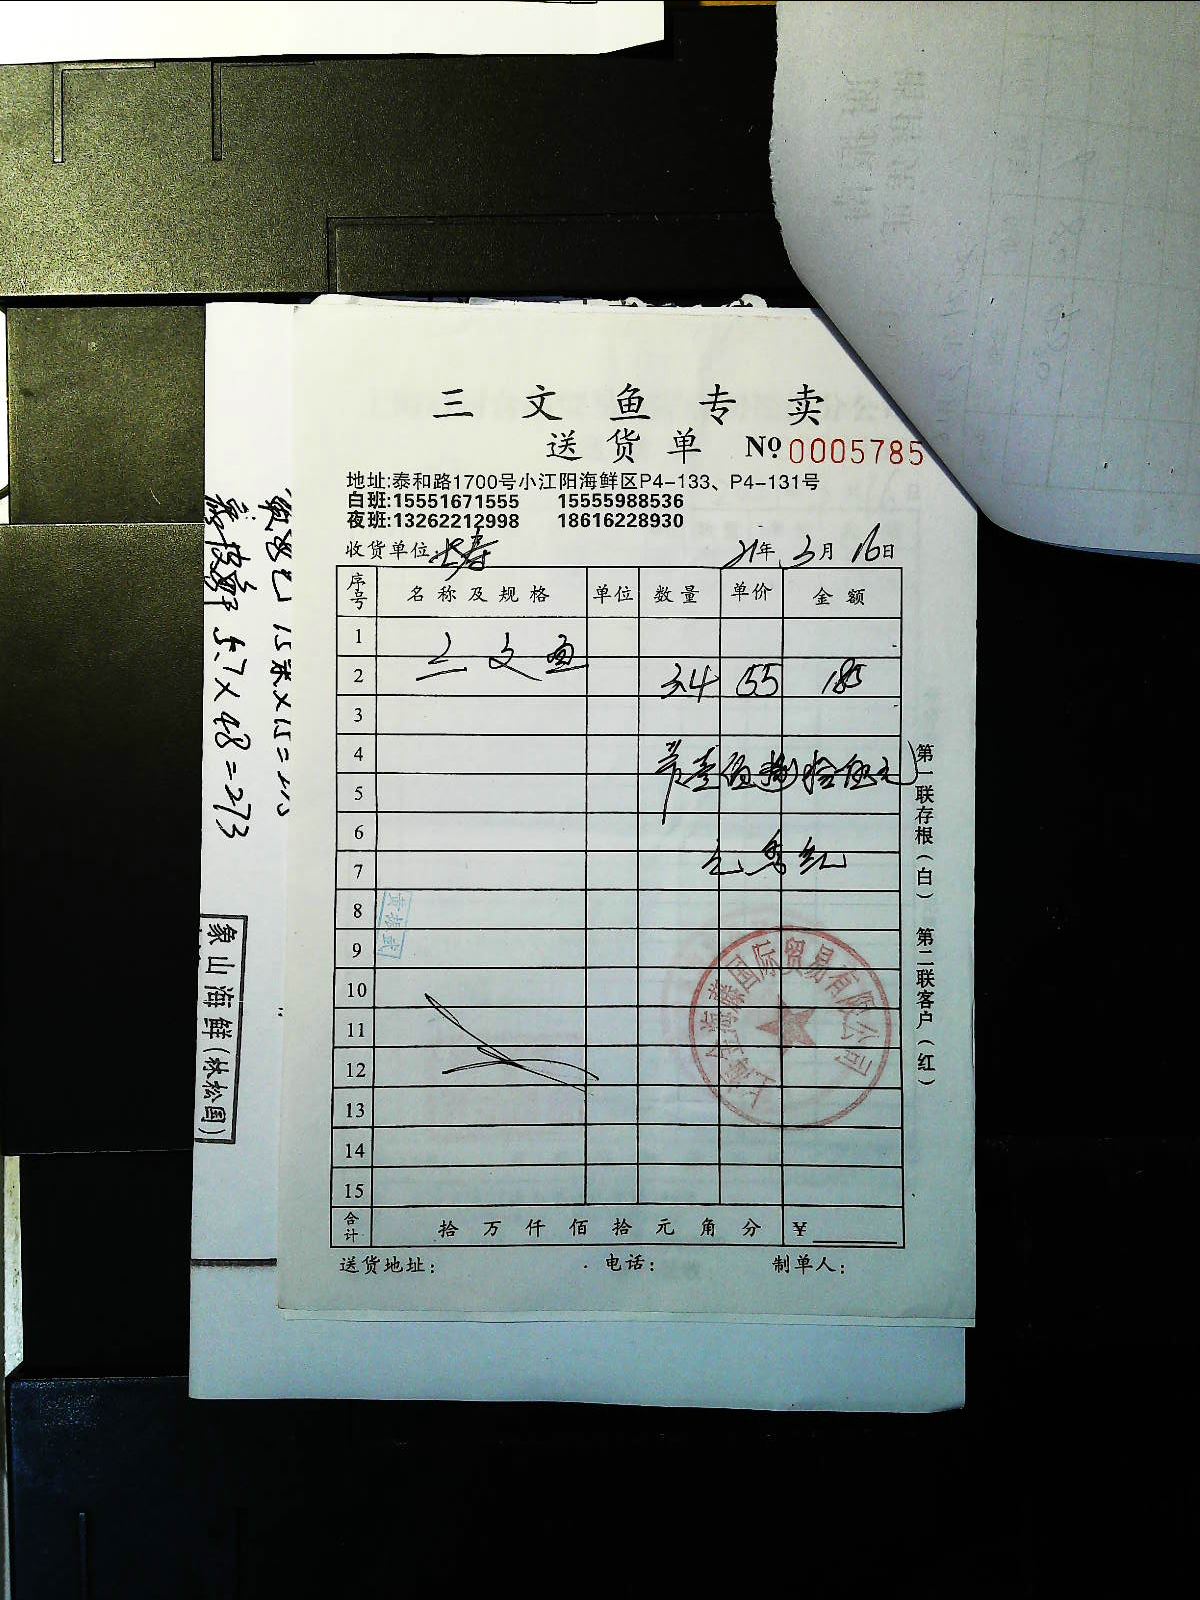 三文鱼专卖
送货单 № 0005785
地址:泰和路1700号小江阳海鲜区P4-133、P4-131号
白班:15551671555 15555988536
夜班:13262212998 18616228930
收货单位:长寿 21年 3月 16日
序号 名称及规格 单位 数量 单价 金额
1
2 三文鱼 3.4 55 185
3
4
壹佰捌拾伍元
5
6
7
8
9
10
11
12
13
14
15
合计 拾 万 仟 佰 拾 元 角 分 ¥
送货地址: 电话: 制单人:
第一联存根(白) 第二联客户(红)
国际贸易有限公司
15 × 15 =
5.7×48=273
象山海鲜(林松国)